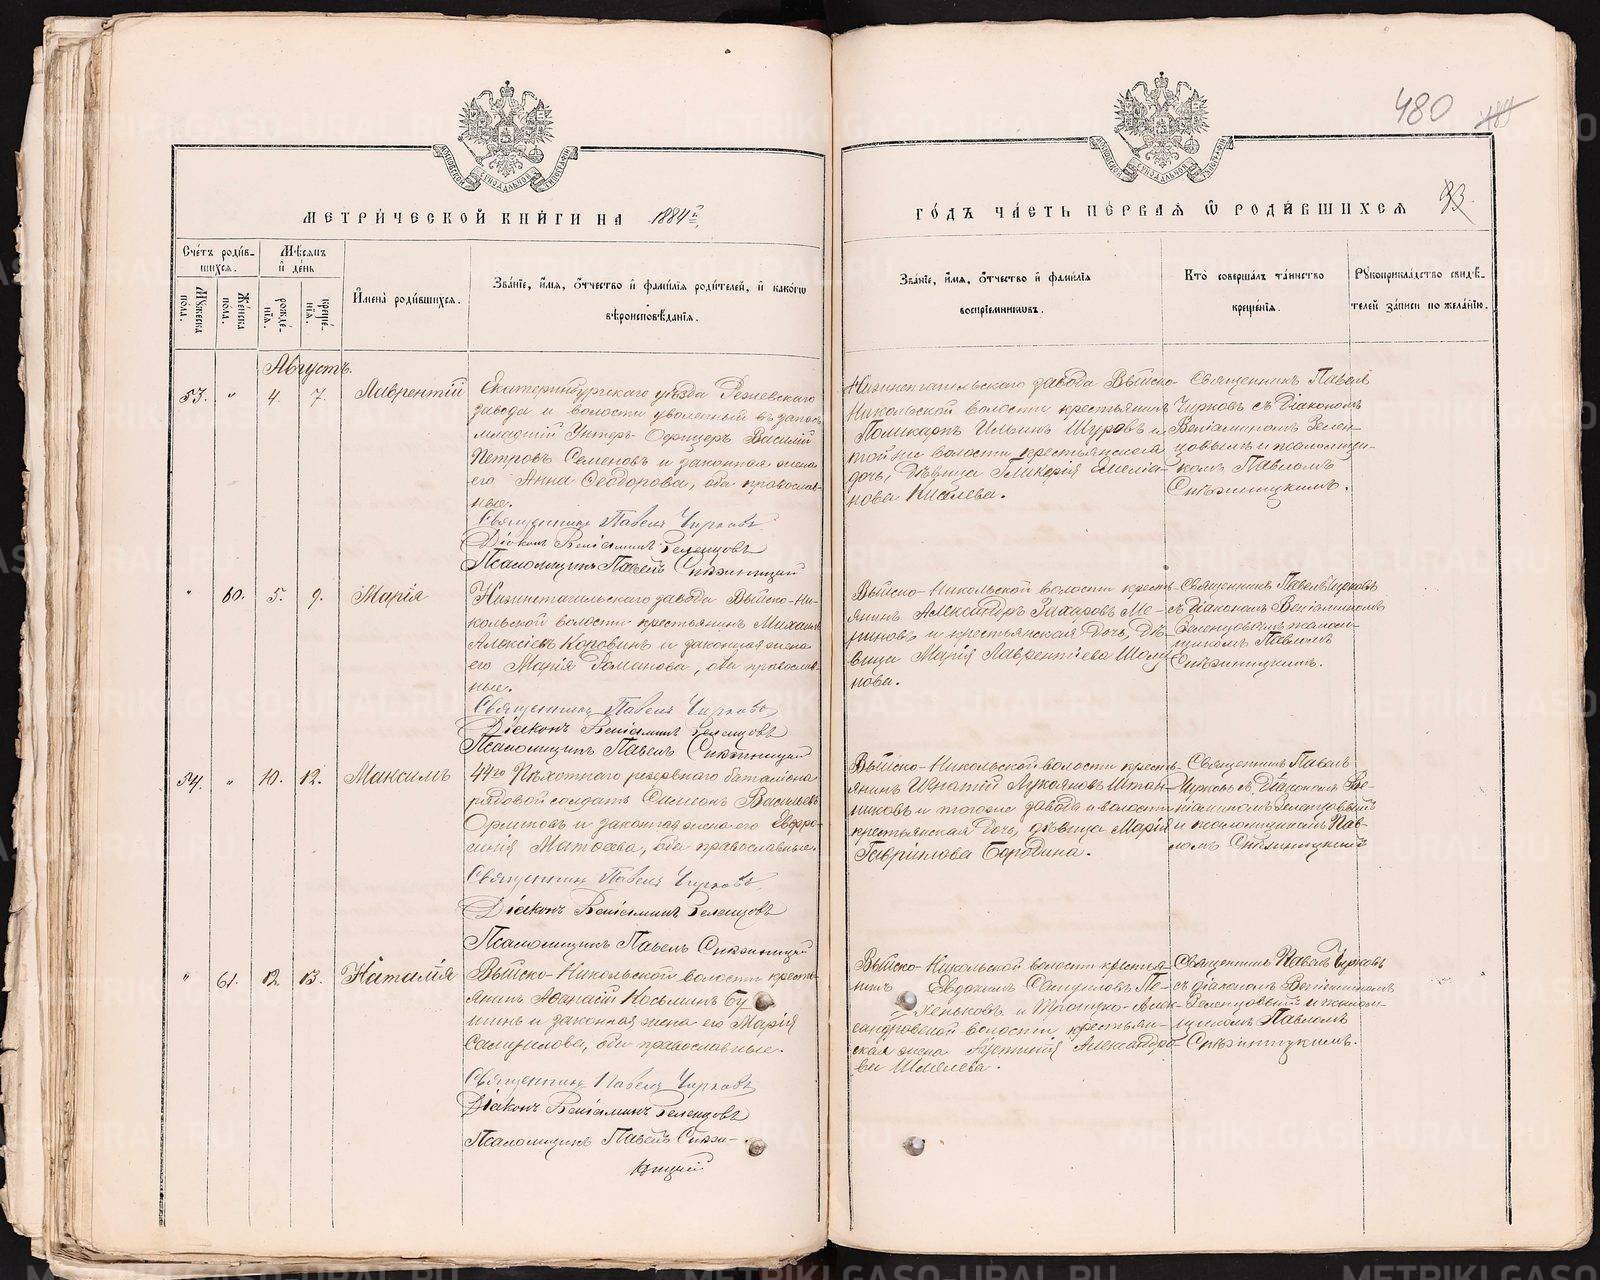 480
93.
МЕТРИЧЕСКОЙ КНИГИ НА 1884 г.
ГОДЪ ЧАСТЬ ПЕРВАЯ Ѡ РОДИВШИХСЯ
Счетъ родив-
шихся.
Мужеска
пола.
Женска
пола.
Мѣсяцъ
и день
рожде-
нія.
креще-
нія.
Имена родившихся.
Званіе, имя, отчество и фамилія родителей, и какогѡ
вѣроисповѣданія.
Званіе, имя, отчество и фамилія
воспріемниковъ.
Кто совершалъ таинство
крещенія.
Рукоприкладство свидѣ-
телей записи по желанію.
Августъ.
53. " 4. 7. Лаврентій
Екатеринбургскаго уѣзда Режевскаго
завода и волости уволенный въ запасъ
младшій Унтеръ-Офицеръ Василій
Петровъ Семеновъ и законная жена
его Анна Ѳеодорова, оба православ-
ные.
Священникъ Павелъ Чирковъ
Діаконъ Веніаминъ Зеленцовъ
Псаломщикъ Павелъ Снѣжницкій
Нижнетагильскаго завода Выйско-
Никольской волости крестьянинъ
Поликарпъ Ильинъ Щуровъ и
той же волости крестьянская
дочь, дѣвица Гликерія Амелiа-
нова Киселева.
Священникъ Павелъ
Чирковъ съ Діакономъ
Веніаминомъ Зелен-
цовымъ и псаломщи-
комъ Павломъ
Снѣжницкимъ.
" 60. 5. 9. Марія
Нижнетагильскаго завода Выйско-Ни-
кольской волости крестьянинъ Михаилъ
Алексѣевъ Коровинъ и законная жена
его Марія Романова, оба православ-
ные.
Священникъ Павелъ Чирковъ
Діаконъ Веніаминъ Зеленцовъ
Псаломщикъ Павелъ Снѣжницкій
Выйско-Никольской волости кресть-
янинъ Александръ Захаровъ Ме-
риновъ и крестьянская дочь, дѣ-
вица Марія Лаврентіева
нова.
Священникъ Павелъ Чирковъ
съ Діакономъ Веніаминомъ
Зеленцовымъ и псалом-
щикомъ Павломъ
Снѣжницкимъ.
54. " 10. 12. Максимъ
44го Пѣхотнаго резервнаго баталіона
рядовой солдатъ Симеонъ Васильевъ
Орликовъ и законная жена его Евфро-
синія Матѳеева, оба православные.
Священникъ Павелъ Чирковъ
Діаконъ Веніаминъ Зеленцовъ
Псаломщикъ Павелъ Снѣжницкій
Выйско-Никольской волости кресть-
янинъ Игнатій Лукояновъ Штан-
никовъ и того же завода и волости
крестьянская дочь, дѣвица Марія
Гавріилова Бородина.
Священникъ Павелъ
Чирковъ съ Діакономъ Ве-
ніаминомъ Зеленцовымъ
и псаломщикомъ Пав-
ломъ Снѣжницкимъ
" 61. 12. 13. Наталія
Выйско-Никольской волости кресть-
янинъ Аѳанасій Косьминъ
и законная жена его Марія
Самуилова, оба православные.
Священникъ Павелъ Чирковъ
Діаконъ Веніаминъ Зеленцовъ
Псаломщикъ Павелъ Снѣж-
ницкій
Выйско-Никольской волости крестья-
нинъ Евдокимъ Самуиловъ Пе-
хеньковъ и Троицко-Алек-
сандровской волости крестьян-
ская жена Александро-
ва Шмелева.
Священникъ Павелъ Чирковъ
съ діакономъ Веніаминомъ
Зеленцовымъ и псалом-
щикомъ Павломъ
Снѣжницкимъ.
METRIKI.GASO-URAL.RU